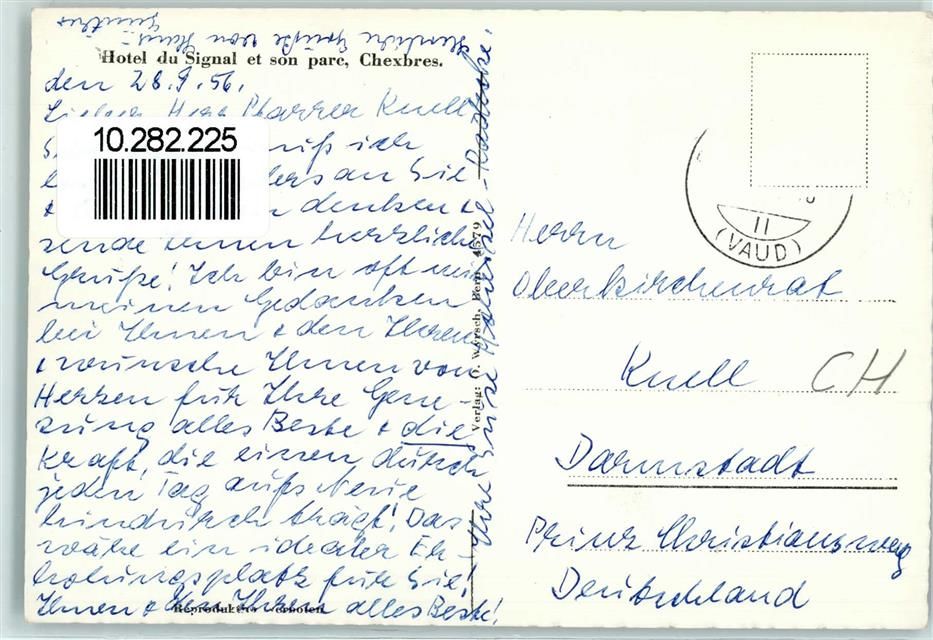 Herzliche Grüße von
Hotel du Signal et son parc, Chexbres.
den 28.9.56.
Lieber Herr Pfarrer Knell
10.282.225
muß ich
an Sie
denken &
sende Ihnen herzliche
Grüße! Ich bin oft mit
meinen Gedanken
bei Ihnen & den Ihren
& wünsche Ihnen von
Herzen für Ihre Gene-
sung alles Beste & die
Kraft, die einen durch
jeden Tag aufs Neue
hindurch trägt! Das
wäre ein idealer Er-
holungsplatz für Sie.
Ihnen & den Ihren alles Beste!
Reproduktion verboten
Ihre
Verlag: O. Wyrsch, Bern 4579
II
(VAUD)
Herrn
Oberkirchenrat
Knell
CH
Darmstadt
Prinz Christiansweg
Deutschland